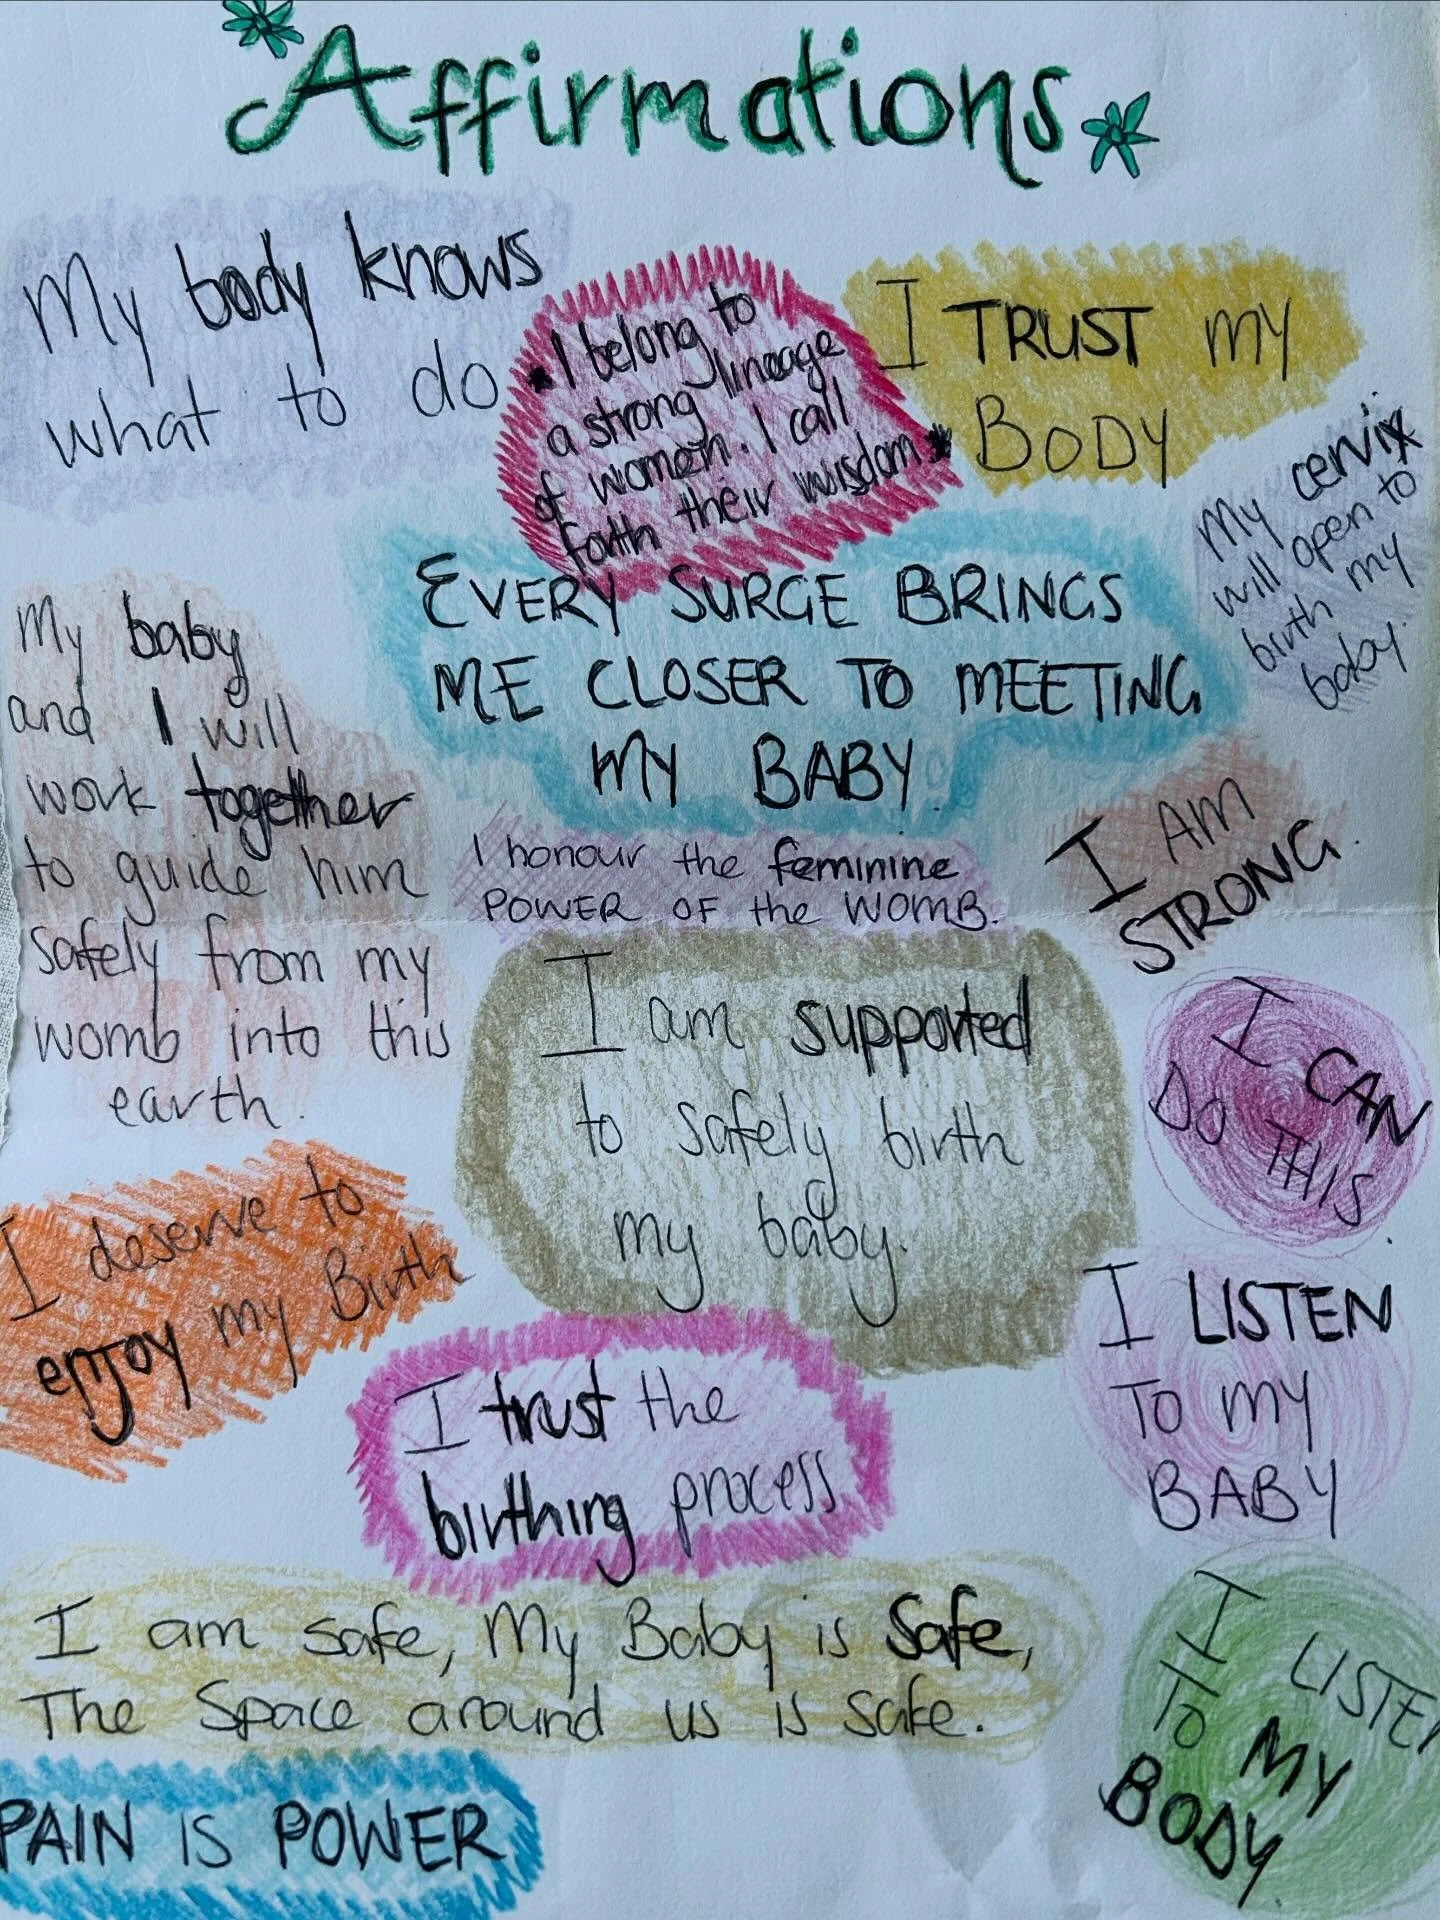 Affirmations
My body knows
what to do
I belong to
a strong lineage
of women. I call
forth their wisdom
I TRUST MY
BODY
My cervix
will open to
birth my
baby.
EVERY SURGE BRINGS
ME CLOSER TO MEETING
MY BABY.
My baby
and I will
work together
to guide him
safely from my
womb into this
earth.
I honour the feminine
POWER OF the WOMB.
I AM
STRONG.
I am supported
to safely birth
my baby.
I CAN
DO THIS.
I deserve to
enjoy my Birth
I LISTEN
TO MY
BABY
I trust the
birthing process
I am safe, My Baby is Safe,
The Space around us is safe.
I LISTEN
TO MY
BODY.
PAIN IS POWER